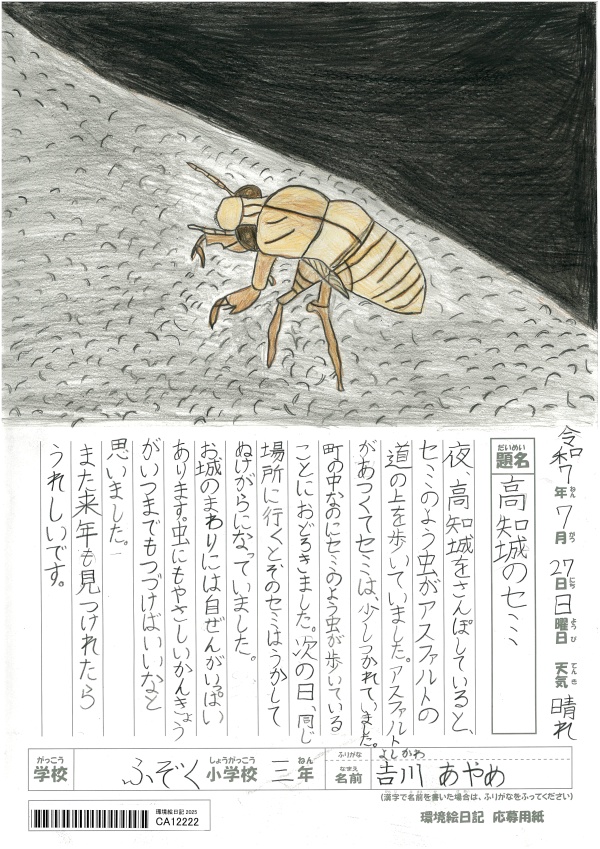 令和7年7月27日日曜日 天気 晴れ
ねん がつ にち ようび てんき
だいめい
題名 高知城のセミ
夜、高知城をさんぽしていると、
セミのよう虫がアスファルトの
道の上を歩いていました。アスファルト
があつくてセミは、少しつかれていました。
町の中なのにセミのよう虫が歩いている
ことにおどろきました。次の日、同じ
場所に行くとそのセミはうかして
ぬけがらになっていました。
お城のまわりには自ぜんがいっぱい
あります。虫にもやさしいかんきょう
がいつまでもつづけばいいなと
思いました。
また来年も見つけれたら
うれしいです。
がっこう しょうがっこう ねん
学校 ふぞく小学校 三年
ふりがな よしかわ
なまえ
名前 吉川 あやめ
(漢字で名前を書いた場合は、ふりがなをふってください)
環境絵日記 2025
CA12222
環境絵日記 応募用紙